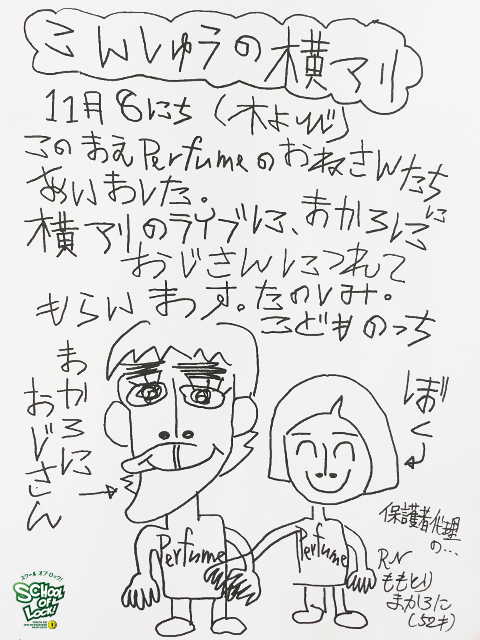 こんしゅうの横アリ
11月6にち（木よび）
このまえPerfumeのおねさんたち
あいました。
横アリのライブに、まかろにに
おじさんにつれて
もらいます。たのしみ。
こどものっち
まかろに
おじさん
ぼく
Perfume
Perfume
保護者代理
の…
RN
ももとり
まかろに
(52才)
スクール オブ ロック!
SCHOOL
OF
LOCK!